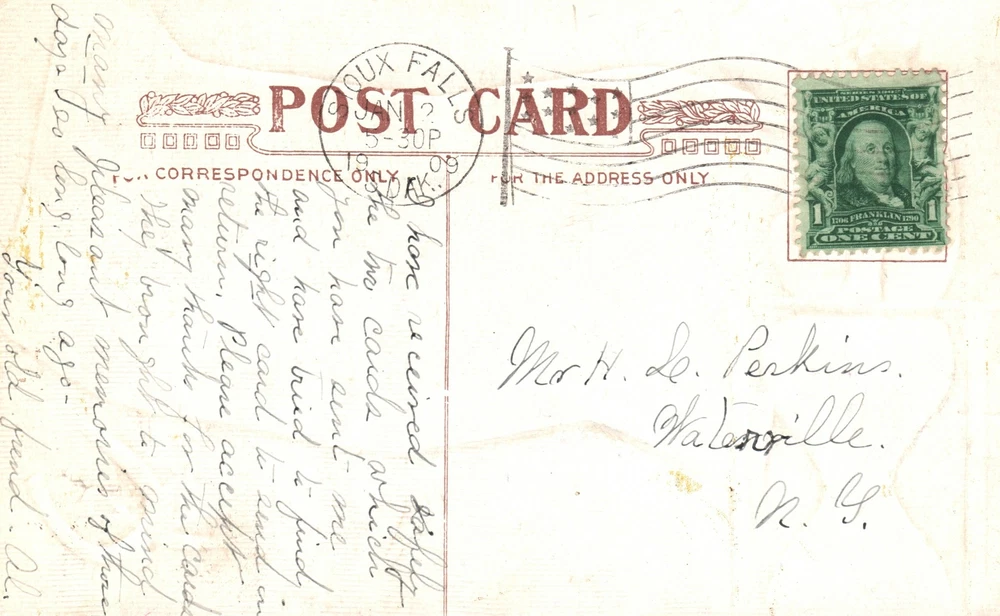 POST CARD
CORRESPONDENCE ONLY
FOR THE ADDRESS ONLY
SIOUX FALLS
JAN 2
5-30P
1909
S. DAK.
UNITED STATES OF
AMERICA
1 1
1706 FRANKLIN 1790
POSTAGE
ONE CENT
Mr H. L. Perkins.
Waterville.
N. Y.
I have received safely
the two cards which
you have sent me
and have tried to find
the right card to send in
return. Please accept
many thanks for the cards
They brought to mind
many pleasant memories of those
days so long, long ago-
Your old friend. Al.